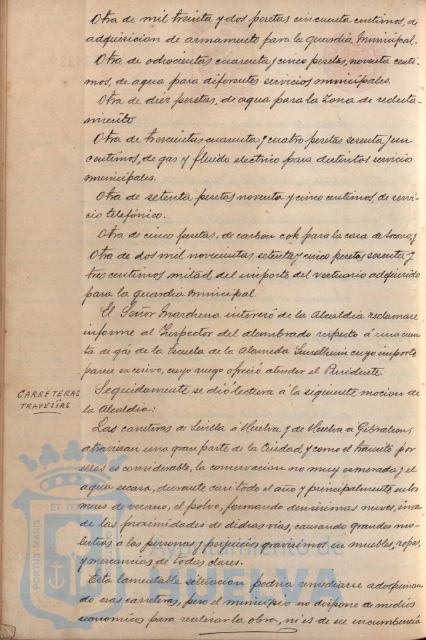 Otra de mil treinta y dos pesetas cincuenta centimos, de
adquisicion de armamento para la guardia municipal.
Otra de ochocientas cuarenta y cinco pesetas, noventa centi-
mos, de agua para diferentes servicios municipales.
Otra de diez pesetas, de agua para la Zona de recluta-
miento
Otra de trescientas cuarenta y cuatro pesetas sesenta y un
centimos, de gas y fluido electrico para distintos servicios
municipales.
Otra de setenta pesetas noventa y cinco centimos, de servi-
cio telefónico.
Otra de cinco pesetas, de carbon cok para la casa de socorro, y
Otra de dos mil novecientas setenta y cinco pesetas, sesenta y
tres centimos mitad del importe del vestuario adquirido
para la guardia municipal.
El Señor Marchena interesó de la Alcaldia reclamase
informe al Inspector del alumbrado respecto á una cuen-
ta de gas de la Escuela de la Alameda Sundheim cuyo importe
parece excesivo, cuyo ruego ofreció atender el Presidente.
CARRETERAS
TRAVESÍAS
Seguidamente se dió lectura á la siguiente mocion de
la Alcaldia:
Las carreteras de Sevilla á Huelva y de Huelva a Gibraleon,
atraviesan una gran parte de la Ciudad y como el transito por
ellas es considerable, la conservacion no muy esmerada y el
agua escasa, durante casi todo el año y principalmente en los
meses de verano, el polvo, formando densisimas nubes, inva-
de las proximidades de dichas vias, causando grandes mo-
lestias á las personas y perjuicios gravisimos en muebles, ropas,
y mercancias de todas clases.
Esta lamentable situacion podria remediarse adoquinan-
do esas carreteras, pero el municipio no dispone de medios
economicos para realizar la obra, ni es de su incumbencia
PORTUS MARIS
ET TER
Ayuntamiento de
HUELVA